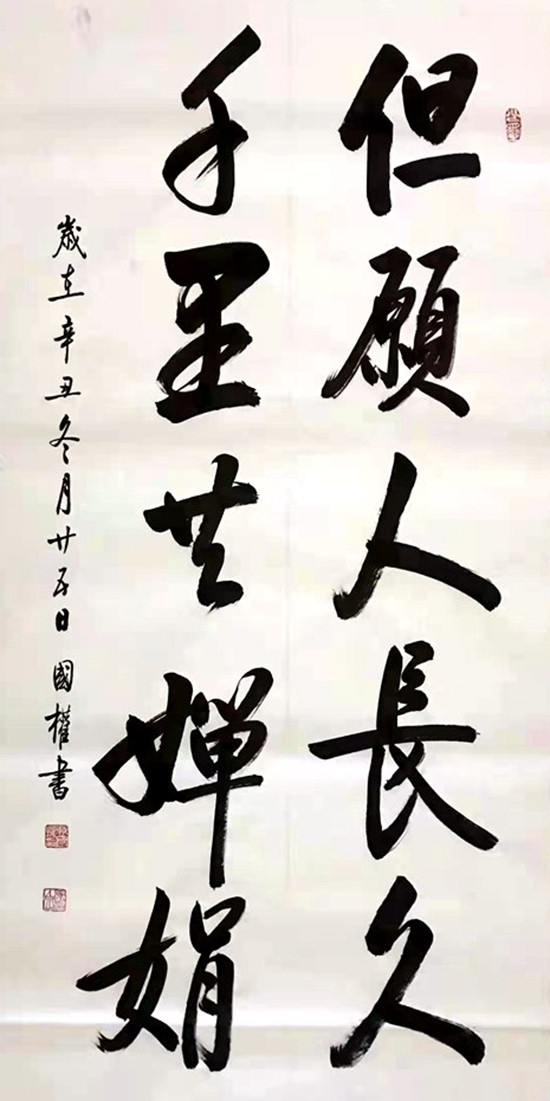 但願人長久
千里共嬋娟
歲在辛丑冬月廿五日 國權書